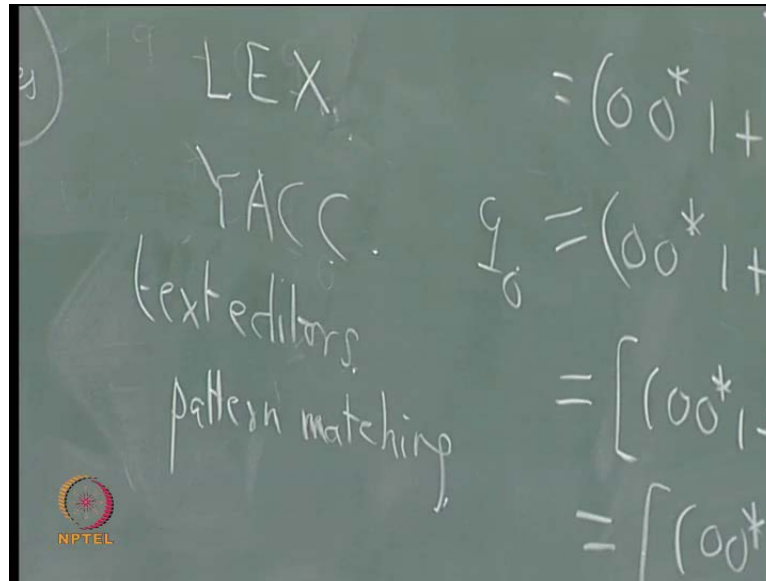 LEX.
YACC.
text editors.
pattern matching
= (00*1+
q0 = (00*1+
= [(00*1-
= [(00*
NPTEL